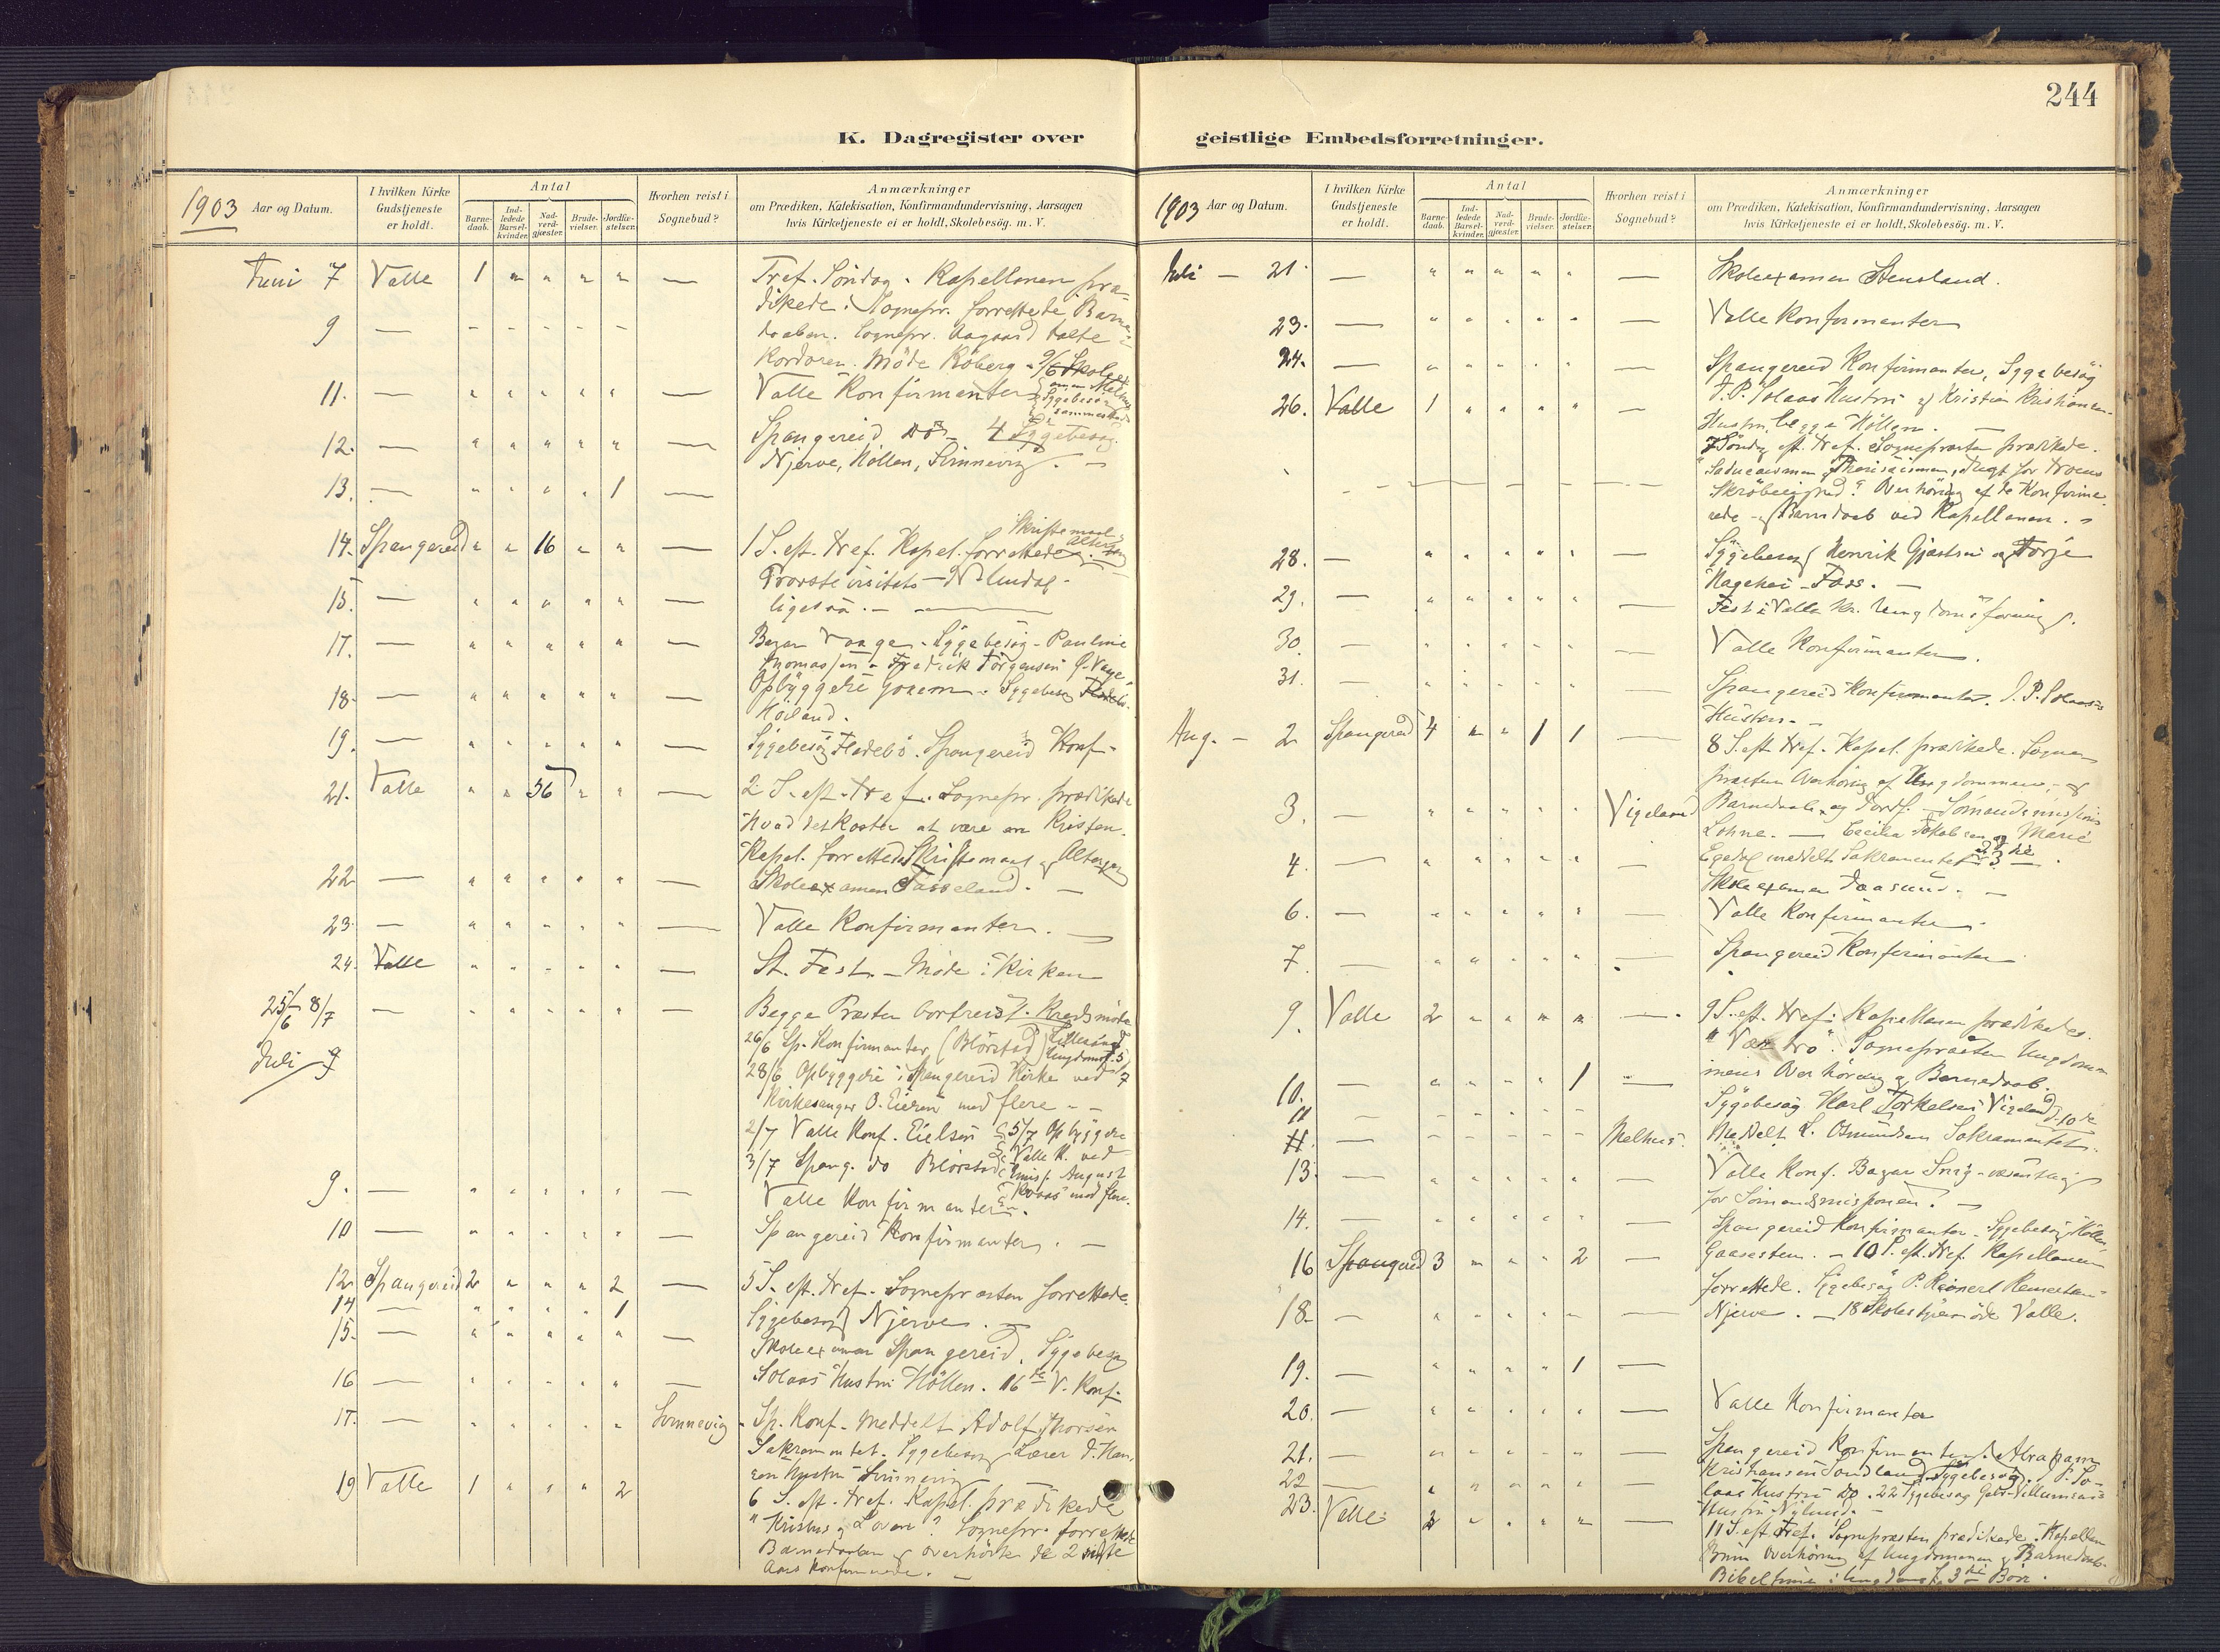 244
K. Dagregister over geistlige Embedsforretninger.
1903 Aar og Datum.
I hvilken Kirke Gudstjeneste er holdt.
Antal
Barnedaab.
Indledede Barselkvinder.
Nadverdgjæster.
Brudevielser.
Jordfæstelser.
Hvorhen reist i Sognebud?
Anmærkninger
om Prædiken, Katekisation, Konfirmandundervisning, Aarsagen
hvis Kirketjeneste ei er holdt, Skolebesög. m. V.
Juni 7 Valle 1 " " " " — Tref. Söndag. Kapellanen præ-
dikede. Sognepr. forrettede Barne-
9 — daaben. Sognepr. Aagaard talte
Möde Köberg - 9/6 Skole
11. — " " " " " — Valle Konfirmanter
12. — " " " " " — Spangereid do - 4 Sygebesög
Njerve, Höllen, Svinnevig. —
13. — " " " " 1 —
14. Spangereid " " 16 " " — 1 S. eft. tref. Kapel. forrettede Skriftemaal
Altergang
Provstevisitats - N. Undal -
15. — " " " " " — ligesaa. —
17. — " " " " " — Bazar Vaage. Sygebesög - Pauline
Thomassen - Fredrik Jörgensen
18. — " " " " " — Opbyggelse Goxem. Sygebesög
Höiland.
19. — " " " " " — Sygebesög Fladebö. Spangereid Konf.
21. Valle " " 56 " " — 2 S. eft. tref. Sognepr. prædikede
Hvad det koster at være en Kristen.
Kapel. forrettede Skriftemaal og Altergang
22 — " " " " " — Skoleexamen Tasseland. —
23. — " " " " " — Valle Konfirmanter. —
24. Valle " " " " " — St. Fest. - Möde i Kirken
25/6 8/7 — " " " " " — Begge Præster bortreist. Kredsmöde
26/6 Sp. Konfirmanter (Blörstad)
Juli 9 28/6 Opbyggelse i Spangereid Kirke ved
Kirkesanger O. Eieren med flere - -
2/7 Valle Konf. Eielsen 5/7 Opbyggelse
Valle K. ved
3/7 Spang. do Blörstad Miss. August
Roaas med flere.
9. — " " " " " — Valle Konfirmanter.
10 — " " " " " — Spangereid Konfirmanter. —
12. Spangereid 2 " " " 2 — 5 S. eft. tref. Sognepræsten forrettede.
14 — " " " " 1 Sygebesög Njerve. —
15. — " " " " " — Skoleexamen Spangereid, Sygebesög
16 — " " " " " — Solaas Hustru Höllen. 16de V. Konf.
17. — " " " " " Svinnevig Sp. Konf. Meddelt Adolf Thorsen
Sakramentet. Sygebesög Lærer
Hustru Svinnevig
19 Valle 1 " " " 2 6 S. eft. tref. Kapel. prædikede
"Kristus og Loven". Sognepr. forrettede
Barnedaaben og overhörte de 2 sidste
Aars Konfirmerede. —
1903 Aar og Datum.
I hvilken Kirke Gudstjeneste er holdt.
Antal
Barnedaab.
Indledede Barselkvinder.
Nadverdgjæster.
Brudevielser.
Jordfæstelser.
Hvorhen reist i Sognebud?
Anmærkninger
om Prædiken, Katekisation, Konfirmandundervisning, Aarsagen
hvis Kirketjeneste ei er holdt, Skolebesög. m. V.
Juli — 21. — " " " " " — Skoleexamen Stensland.
23. — " " " " " — Valle Konfirmanter
24. — " " " " " — Spangereid Konfirmanter, Sygebesög
J. P. Solaas Hustru og Kristian Kristiansen
26. Valle 1 " " " " — Hustru, begge Höllen. —
7 Söndag eft. tref. Sognepræsten prædikede.
Overhöring af de Konfirme-
rede og Barndaab ved Kapellanen.
28. — " " " " " — Sygebesög Henrik Gjertsen og Torje
Hagehei - Foss. —
29. — " " " " " — Fest i Valle kr. Ungdomsforening.
30. — " " " " " — Valle Konfirmanter.
31. — " " " " " — Spangereid Konfirmanter. J. P. Solaas's
Hustru. -
Aug. — 2 Spangereid 4 " " 1 1 — 8 S. eft. tref. Kapel. prædikede. Sogne-
præsten Overhöring af Ungdommen, og
Barnedaab og Jordf. - Sömandsmission
3. — " " " " " Vigeland Lohne. — Cecilia Jakobsen og Marie
Egedal meddelt Sakramentet d. 3die.
4. — " " " " " Skoleexamen Faasund. —
6. — " " " " " — Valle Konfirmanter
7. — " " " " " — Spangereid Konfirmanter
9. Valle 2 " " " " — 9 S. eft. tref. Kapellanen prædikede.
"Vær tro". Sognepræsten Ungdom-
mens Overhöring og Barnedaab.
10. — " " " " 1 — Sygebesög Karl Torkelsen Vigeland d. 10de
11 — " " " " " Melhus. Meddelt L. Osmundsen Sakramentet.
13. — " " " " " — Valle Konf. Bazar Snig
for Sömandsmissionen. —
14. — " " " " " — Spangereid Konfirmanter. Sygebesög Höllen,
Gaasesten. —
16 Spangereid 3 " " " 2 — 10 S. eft. tref. Kapellanen
forrettede. Sygebesög P. Reinert
18. — " " " " " — Njerve. — 18 Skolestyremöde Valle.
19. — " " " " 1 —
20. — " " " " " — Valle Konfirmanter
21. — " " " " " — Spangereid Konfirmanter. Abraham
Kristiansen Sondland Sygebesög. P. So-
22 — " " " " " — laas Hustru do. 22 Sygebesög Gabr. Villumsens
Hustru Nylund.
23. Valle 2 " " " " — 11 S. eft. tref. Sognepræsten prædikede. Kapellan
Bruun Overhöring af Ungdommen og Barnedaab.
Bibeltime i Ungdomsf.